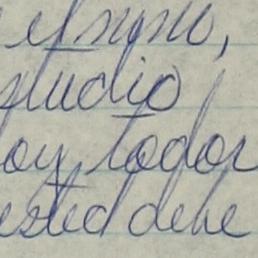 el mismo,
studio
oy todos
usted debe